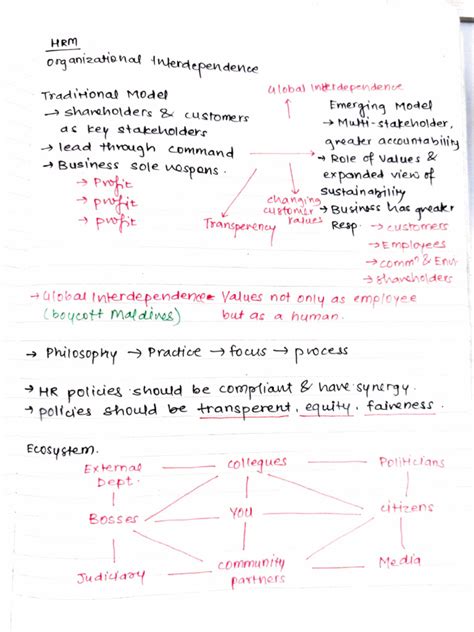 HRM
Organizational Interdependence
Traditional Model
→ shareholders & customers
as key stakeholders
→ lead through command
→ Business sole respons.
→ Profit
→ profit
→ profit
Global Interdependence
Transperency
changing
customer
values
Emerging Model
→ Multi-stakeholder,
greater accountability
→ Role of values &
expanded view of
sustainability
→ Business has greater
Resp.
→ customers
→ Employees
→ comm? & Env.
→ shareholders
→ Global Interdependence
(boycott Maldines)
Values not only as employee
but as a human.
→ Philosophy → Practice → focus → process
→ HR policies should be compliant & have synergy.
→ policies should be transperent, equity, faireness.
Ecosystem.
External
Dept.
collegues
Politicians
Bosses
YOU
citizens
Judiciary
community
partners
Media